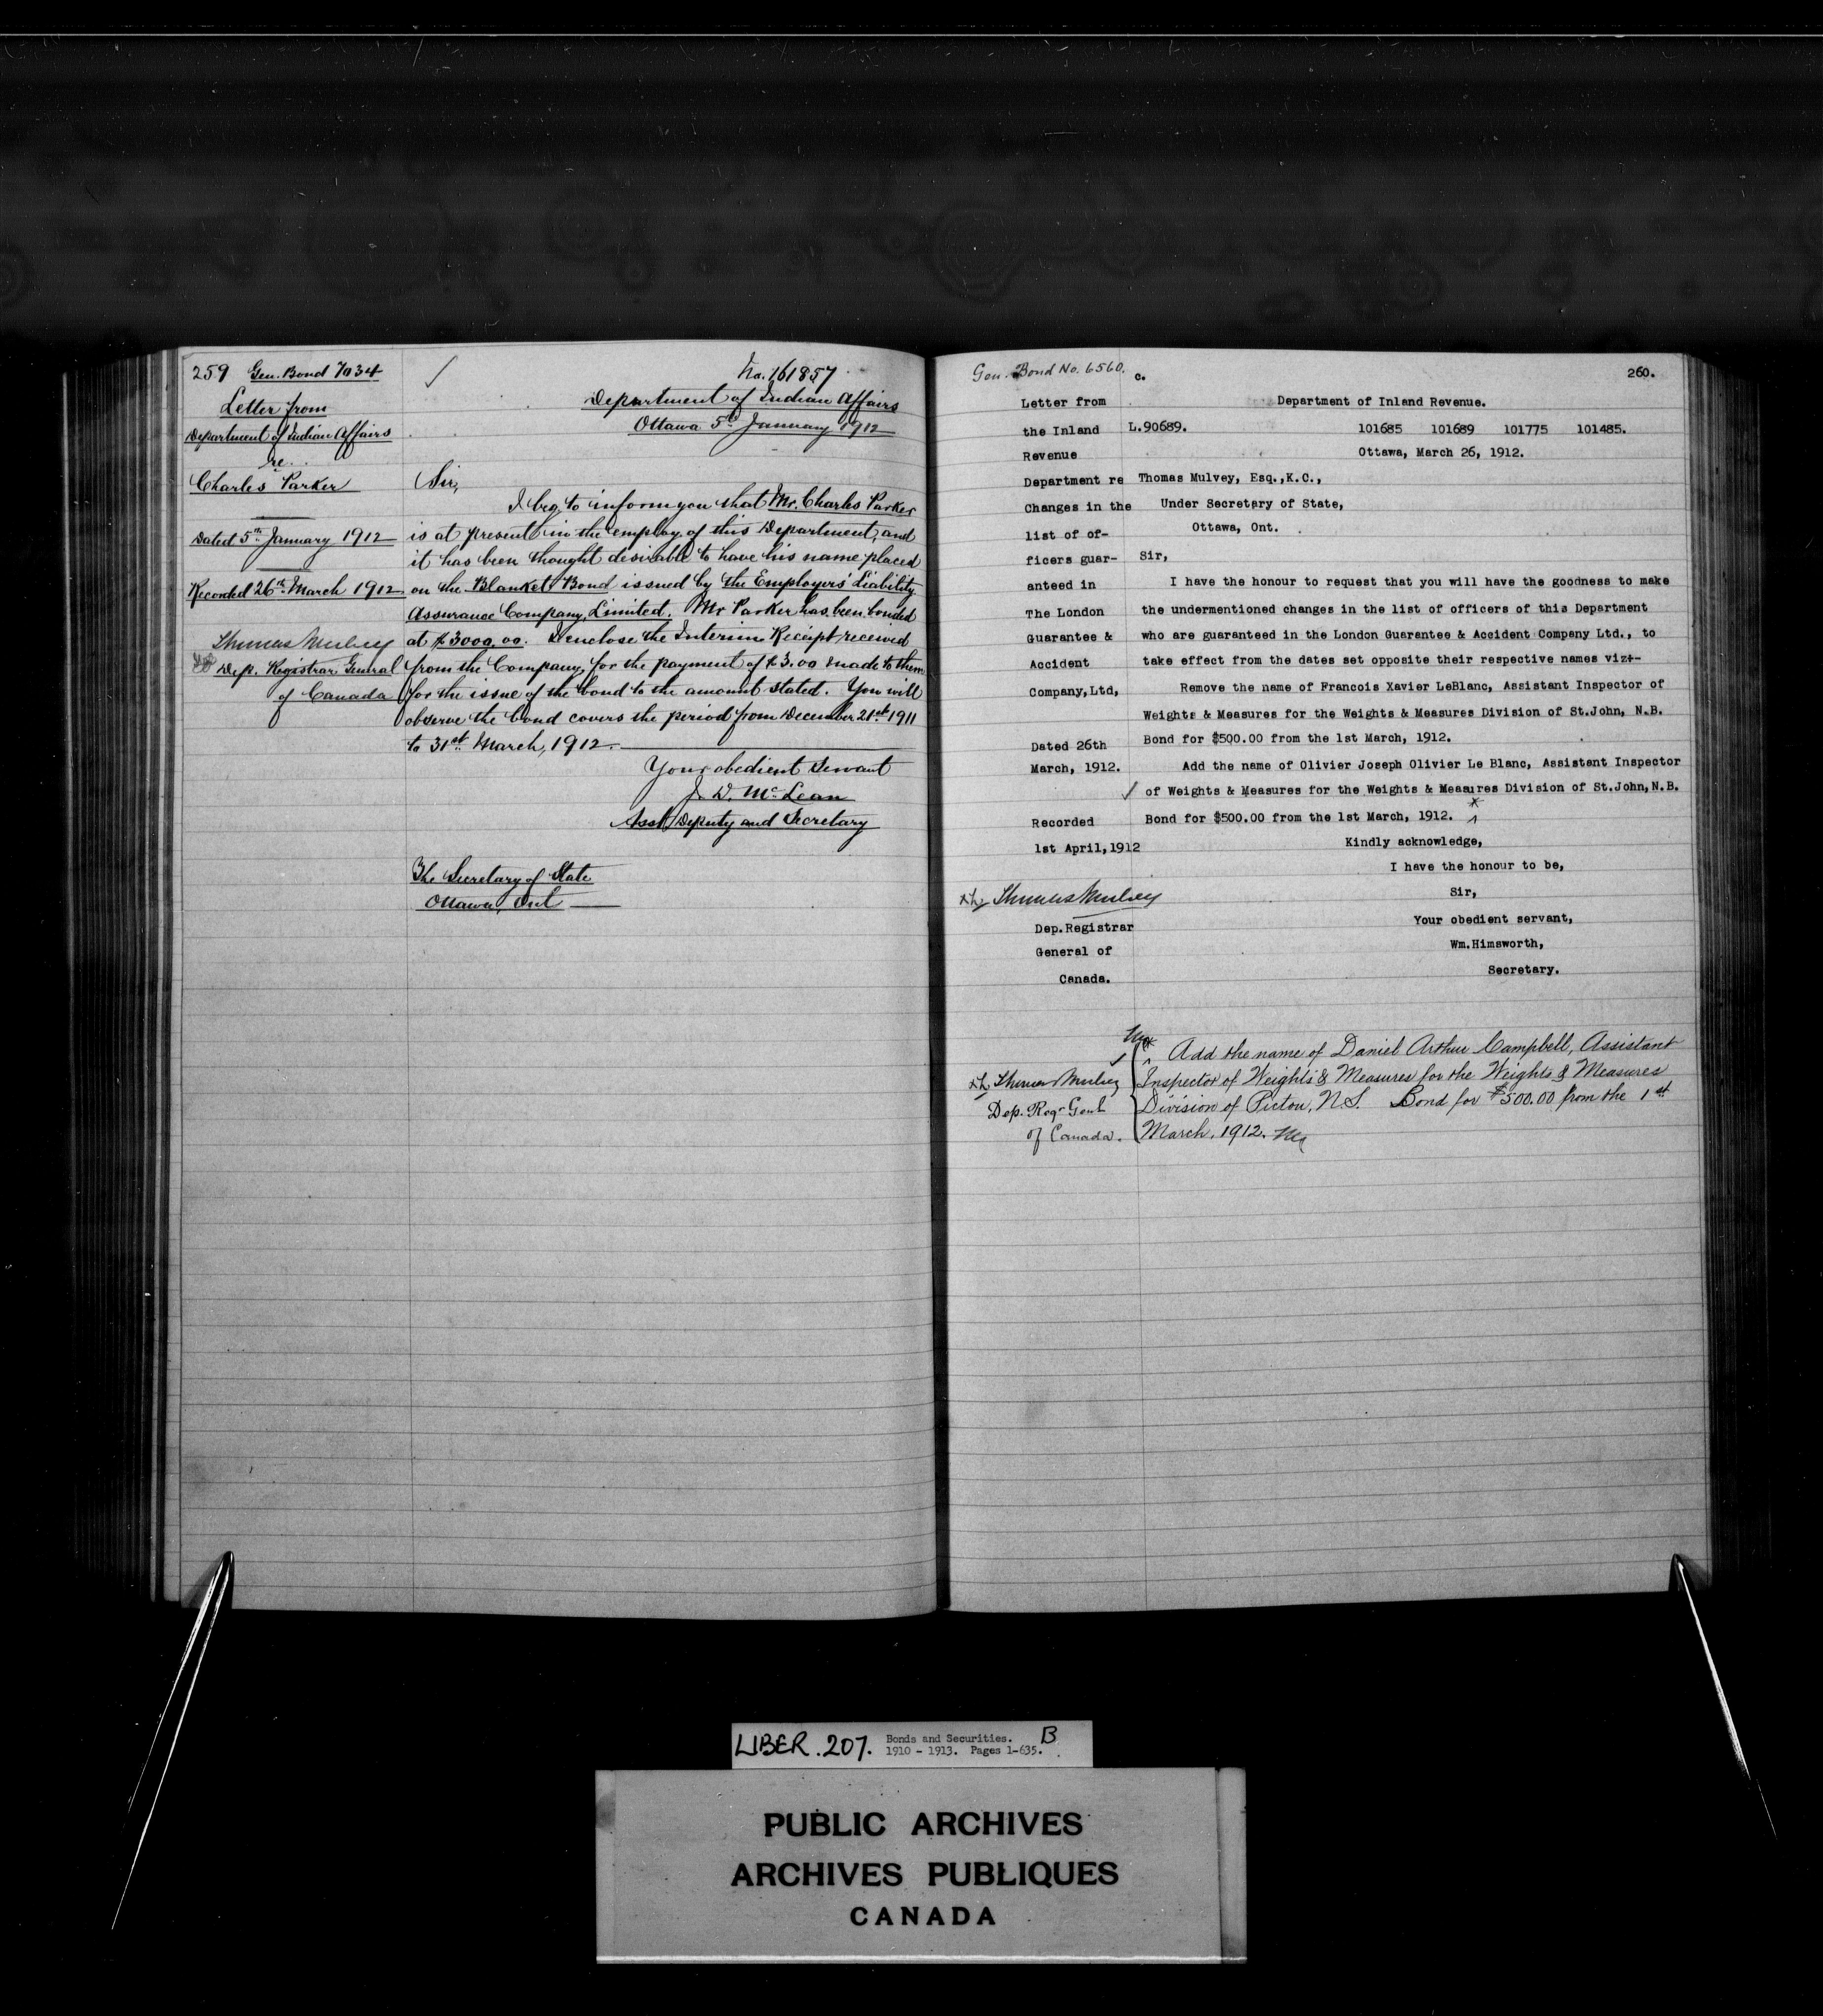 259 Gen. Bond 7034
Letter from
Department of Indian Affairs
re.
Charles Parker
Dated 5th January 1912
Recorded 26th March 1912
Thomas Mulvey
Dep. Registrar General
of Canada
No. 161857
Department of Indian Affairs
Ottawa 5th January 1912
Sir,
I beg to inform you that Mr. Charles Parker
is at present in the employ of this Department, and
it has been thought desirable to have his name placed
on the Blanket Bond issued by the Employers' Liability
Assurance Company, Limited. Mr Parker has been bonded
at $3000.00. I enclose the Interim Receipt received
from the Company, for the payment of $3.00 made to them
for the issue of the bond to the amount stated. You will
observe the bond covers the period from December 21st 1911
to 31st March, 1912.
Your obedient Servant
J. D. McLean
Asst. Deputy and Secretary
The Secretary of State
Ottawa, Ont
Gen. Bond No. 6560.
c.
260.
Letter from
the Inland
Revenue
Department re
Changes in the
list of of-
ficers guar-
anteed in
The London
Guarantee &
Accident
Company,Ltd,
Dated 26th
March, 1912.
Recorded
1st April,1912
Thomas Mulvey
Dep.Registrar
General of
Canada.
Department of Inland Revenue.
L.90689. 101685 101689 101775 101485.
Ottawa, March 26, 1912.
Thomas Mulvey, Esq.,K.C.,
Under Secretary of State,
Ottawa, Ont.
Sir,
I have the honour to request that you will have the goodness to make
the undermentioned changes in the list of officers of this Department
who are guaranteed in the London Guarantee & Accident Company Ltd., to
take effect from the dates set opposite their respective names viz:-
Remove the name of Francois Xavier LeBlanc, Assistant Inspector of
Weights & Measures for the Weights & Measures Division of St.John, N.B.
Bond for $500.00 from the 1st March, 1912.
Add the name of Olivier Joseph Olivier Le Blanc, Assistant Inspector
of Weights & Measures for the Weights & Measures Division of St.John,N.B.
Bond for $500.00 from the 1st March, 1912.
Kindly acknowledge,
I have the honour to be,
Sir,
Your obedient servant,
Wm.Himsworth,
Secretary.
Thomas Mulvey
Dep. Regr Genl
of Canada.
Add the name of Daniel Arthur Campbell, Assistant
Inspector of Weights & Measures for the Weights & Measures
Division of Pictou, N.S. Bond for $500.00 from the 1st
March, 1912.
LIBER. 207. Bonds and Securities. B
1910 - 1913. Pages 1-635.
PUBLIC ARCHIVES
ARCHIVES PUBLIQUES
CANADA